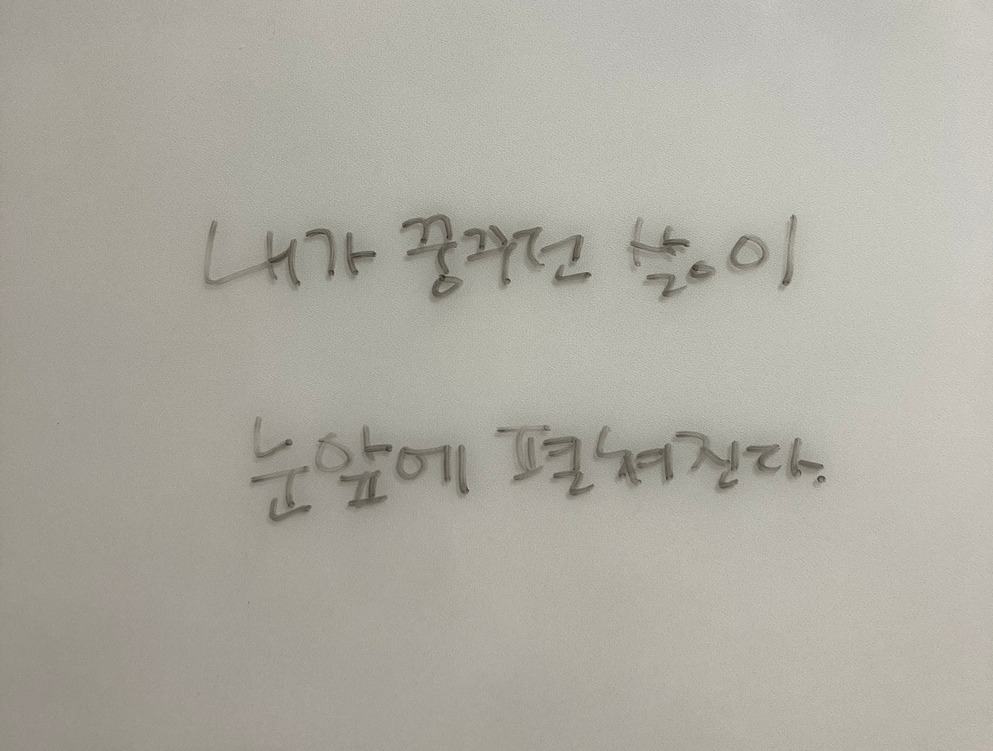 내가 꿈꾸던 삶이
눈앞에 펼쳐진다.